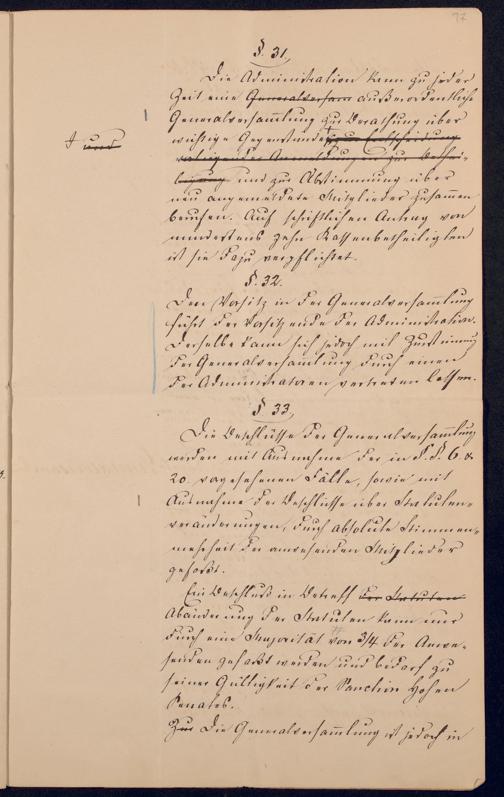 97
§. 31,
Die Administration kann zu jeder
Zeit eine Generalversam außerordentliche
Generalversammlung zur Berathung über
wichtige Gegenstände zur Entscheidung
und
und zur Abstimmung über
neu angemeldete Mitglieder zusammen
berufen. Auf schriftlichen Antrag von
mindestens zehn Kassenbetheiligten
ist sie dazu verpflichtet.
§. 32.
Den Vorsitz in der Generalversammlung
führt der Vorsitzende der Administration.
Derselbe kann sich jedoch mit Zustimmung
der Generalversammlung durch einen
der Administratoren vertreten lassen.
§ 33,
Die Beschlüsse der Generalversammlung
werden mit Ausnahme der in §.§. 6 &
20 vorgesehenen Fälle, sowie mit
Ausnahme der Beschlüsse über Statuten-
veränderungen, durch absolute Stimmen-
mehrheit der anwesenden Mitglieder
gefasst.
Ein Beschluß in Betreff der Statuten
Abänderung der Statuten kann nur
durch eine Majorität von 3/4 der Anwe-
senden gefasst werden und bedarf zu
seiner Gültigkeit der Sanction Hohen
Senates.
Zur Die Generalversammlung ist jedoch in